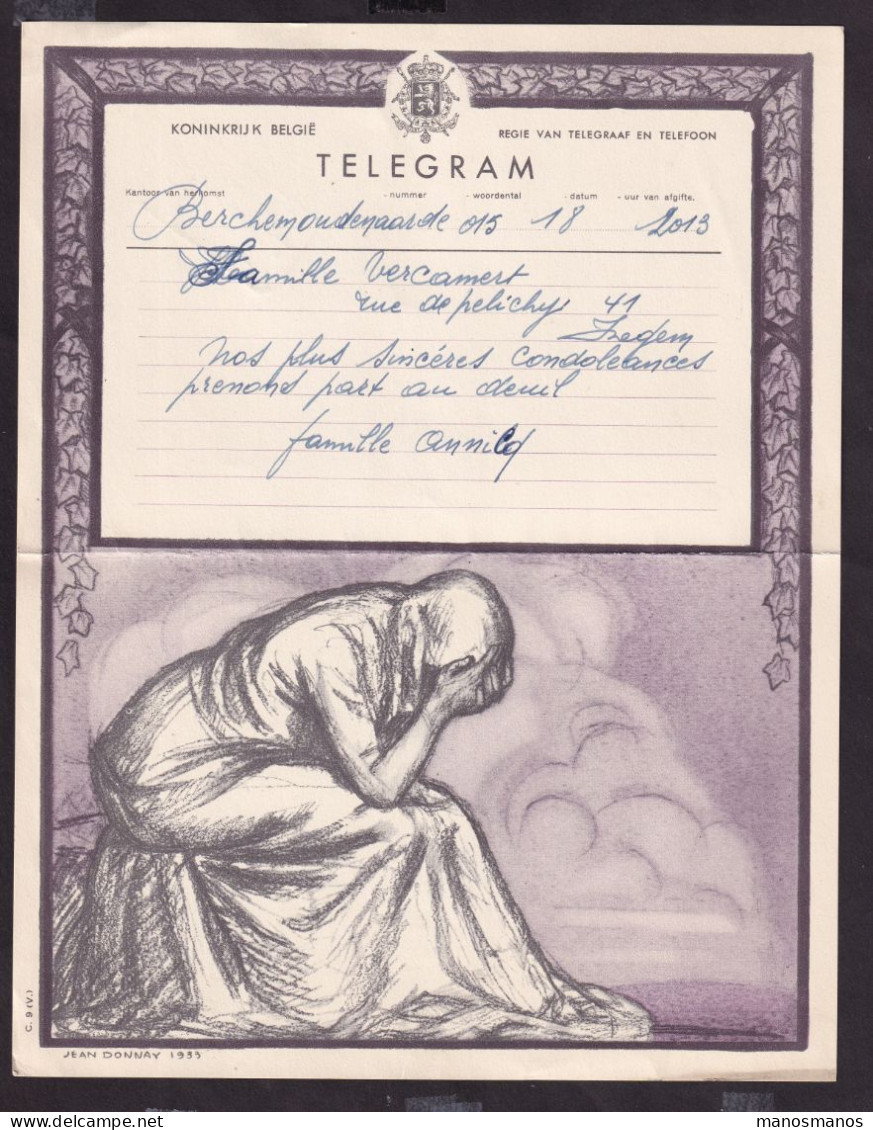 KONINKRIJK BELGIË
REGIE VAN TELEGRAAF EN TELEFOON
TELEGRAM
Kantoor van herkomst - nummer - woordental - datum - uur van afgifte.
Berchemoudenaarde 015 18 2013
Famille Vercamert
rue de pelichy 41
Izegem
nos plus sincéres condoleances
prenons part au deuil
famille
C. 9 (V.)
JEAN DONNAY 1935
manosmanos